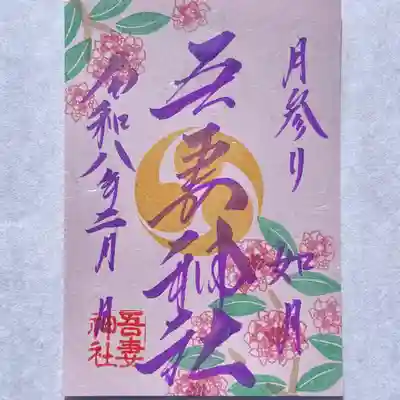 月参り
如月
吾妻神社
令和八年二月 日
吾妻
神社